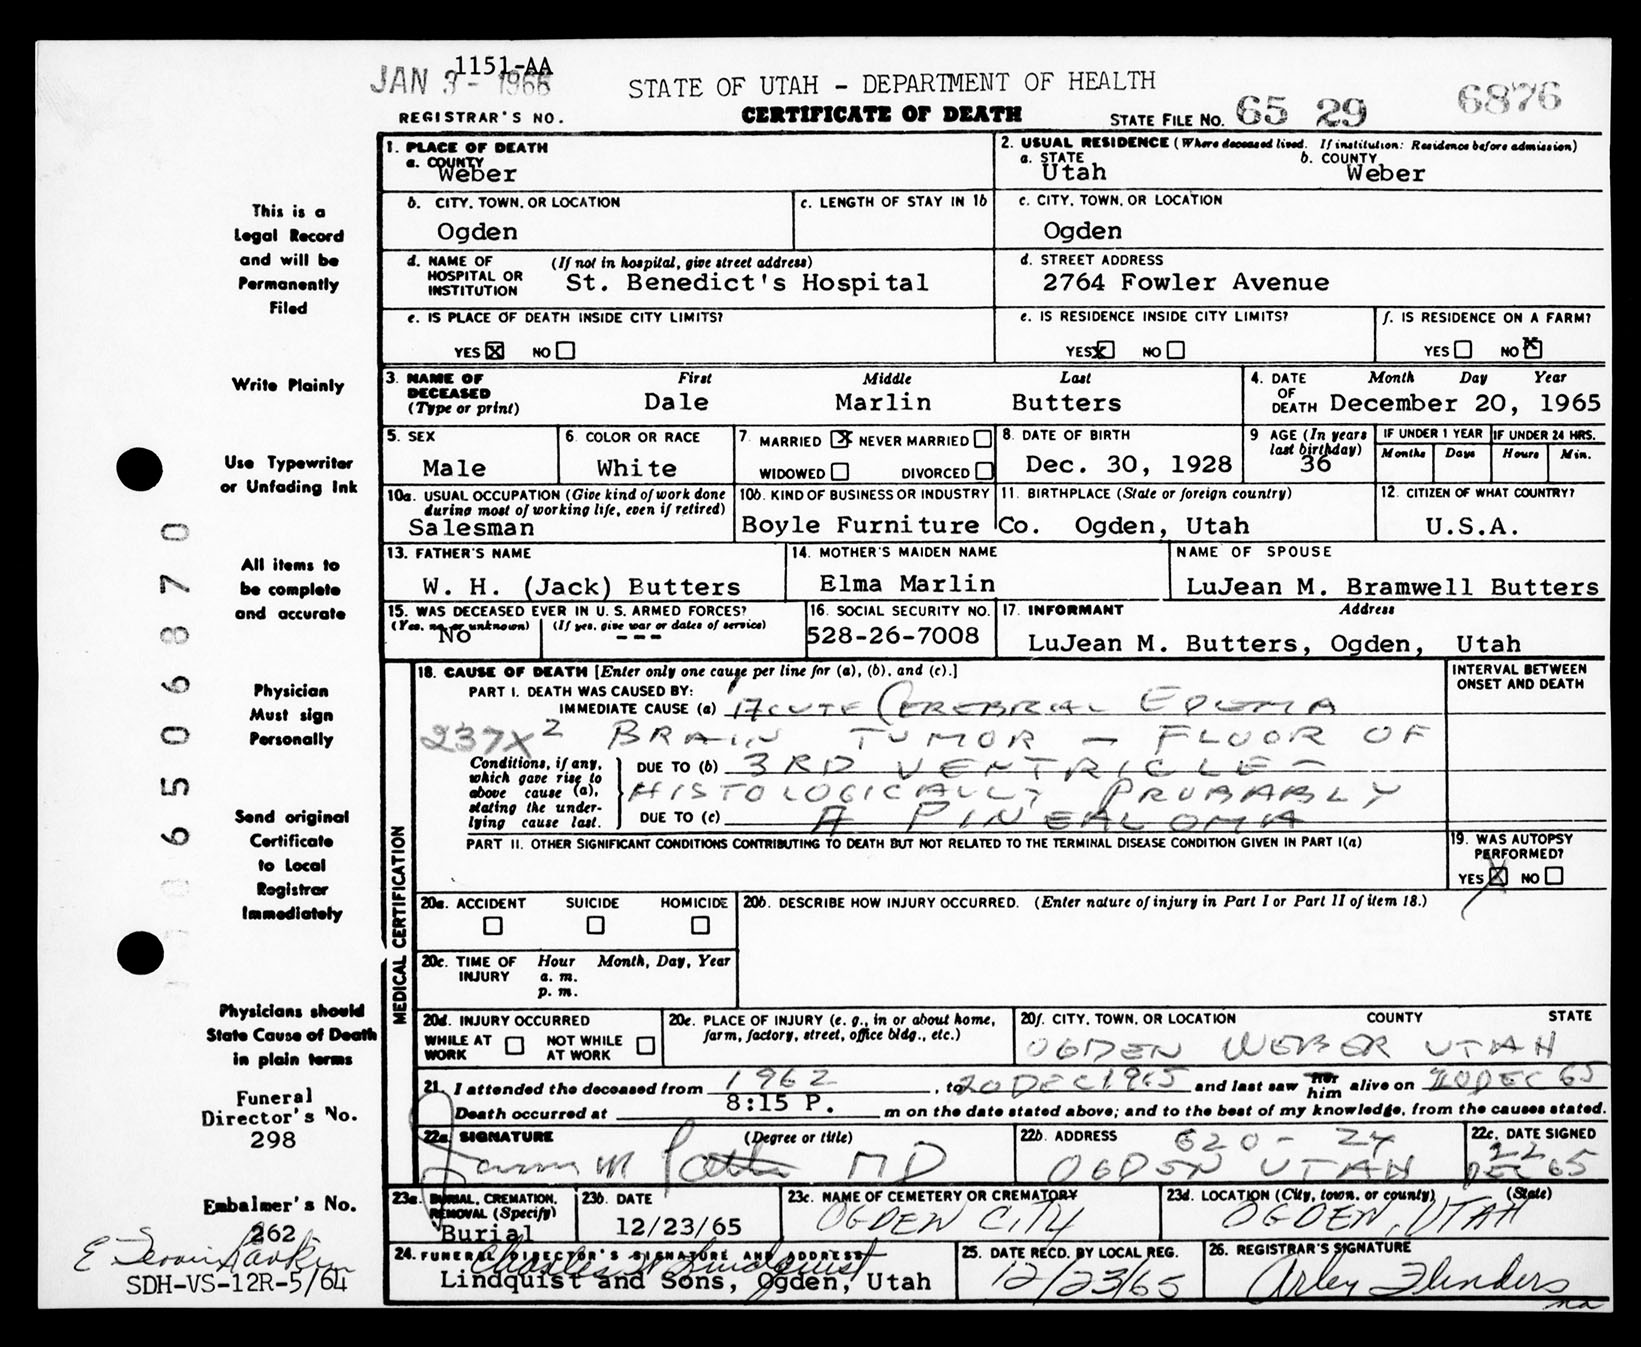 1151-AA
JAN 3 - 1966
STATE OF UTAH - DEPARTMENT OF HEALTH
6876
REGISTRAR'S NO.
CERTIFICATE OF DEATH
STATE FILE NO. 65 29
This is a
Legal Record
and will be
Permanently
Filed
Write Plainly
Use Typewriter
or Unfading Ink
All items to
be complete
and accurate
Physician
Must sign
Personally
Send original
Certificate
to Local
Registrar
Immediately
Physicians should
State Cause of Death
in plain terms
Funeral
Director's No.
298
Embalmer's No.
262
SDH-VS-12R-5/64
0 6 5 0 6 8 7 0
1. PLACE OF DEATH
a. COUNTY
Weber
2. USUAL RESIDENCE (Where deceased lived. If institution: Residence before admission)
a. STATE b. COUNTY
Utah Weber
b. CITY, TOWN, OR LOCATION
Ogden
c. LENGTH OF STAY IN 1b
c. CITY, TOWN, OR LOCATION
Ogden
d. NAME OF HOSPITAL OR INSTITUTION (If not in hospital, give street address)
St. Benedict's Hospital
d. STREET ADDRESS
2764 Fowler Avenue
e. IS PLACE OF DEATH INSIDE CITY LIMITS?
YES X NO
e. IS RESIDENCE INSIDE CITY LIMITS?
YES X NO
f. IS RESIDENCE ON A FARM?
YES NO X
3. NAME OF DECEASED (Type or print) First Middle Last
Dale Marlin Butters
4. DATE OF DEATH Month Day Year
December 20, 1965
5. SEX
Male
6. COLOR OR RACE
White
7. MARRIED X NEVER MARRIED
WIDOWED DIVORCED
8. DATE OF BIRTH
Dec. 30, 1928
9 AGE (In years last birthday)
36
IF UNDER 1 YEAR IF UNDER 24 HRS.
Months Days Hours Min.
10a. USUAL OCCUPATION (Give kind of work done during most of working life, even if retired)
Salesman
10b. KIND OF BUSINESS OR INDUSTRY
Boyle Furniture Co.
11. BIRTHPLACE (State or foreign country)
Ogden, Utah
12. CITIZEN OF WHAT COUNTRY?
U.S.A.
13. FATHER'S NAME
W. H. (Jack) Butters
14. MOTHER'S MAIDEN NAME
Elma Marlin
NAME OF SPOUSE
LuJean M. Bramwell Butters
15. WAS DECEASED EVER IN U. S. ARMED FORCES?
(Yes, no, or unknown) (If yes, give war or dates of service)
No ---
16. SOCIAL SECURITY NO.
528-26-7008
17. INFORMANT Address
LuJean M. Butters, Ogden, Utah
MEDICAL CERTIFICATION
18. CAUSE OF DEATH [Enter only one cause per line for (a), (b), and (c).]
INTERVAL BETWEEN ONSET AND DEATH
PART I. DEATH WAS CAUSED BY:
IMMEDIATE CAUSE (a) ACUTE CEREBRIAL EDEMA
237X2 BRAIN TUMOR - FLOOR OF
Conditions, if any, which gave rise to above cause (a), stating the underlying cause last.
DUE TO (b) 3RD VENTRICLE -
HISTOLOGICALLY PROBABLY
DUE TO (c) A PINEALOMA
PART II. OTHER SIGNIFICANT CONDITIONS CONTRIBUTING TO DEATH BUT NOT RELATED TO THE TERMINAL DISEASE CONDITION GIVEN IN PART I(a)
19. WAS AUTOPSY PERFORMED?
YES X NO
20a. ACCIDENT SUICIDE HOMICIDE
20b. DESCRIBE HOW INJURY OCCURRED. (Enter nature of injury in Part I or Part II of item 18.)
20c. TIME OF INJURY Hour Month, Day, Year
a. m.
p. m.
20d. INJURY OCCURRED
WHILE AT WORK NOT WHILE AT WORK
20e. PLACE OF INJURY (e. g., in or about home, farm, factory, street, office bldg., etc.)
20f. CITY, TOWN, OR LOCATION COUNTY STATE
OGDEN WEBER UTAH
21. I attended the deceased from 1962, to 20 DEC 1965 and last saw her him alive on 20 DEC 65
Death occurred at 8:15 P. m on the date stated above; and to the best of my knowledge, from the causes stated.
22a. SIGNATURE (Degree or title)
MD
22b. ADDRESS
620 - 24
OGDEN UTAH
22c. DATE SIGNED
22
DEC 65
23a. BURIAL, CREMATION, REMOVAL (Specify)
Burial
23b. DATE
12/23/65
23c. NAME OF CEMETERY OR CREMATORY
OGDEN CITY
23d. LOCATION (City, town, or county) (State)
OGDEN, UTAH
24. FUNERAL DIRECTOR'S SIGNATURE AND ADDRESS
Charles W Lindquist
Lindquist and Sons, Ogden, Utah
25. DATE RECD. BY LOCAL REG.
12/23/65
26. REGISTRAR'S SIGNATURE
Arley Flinders
na